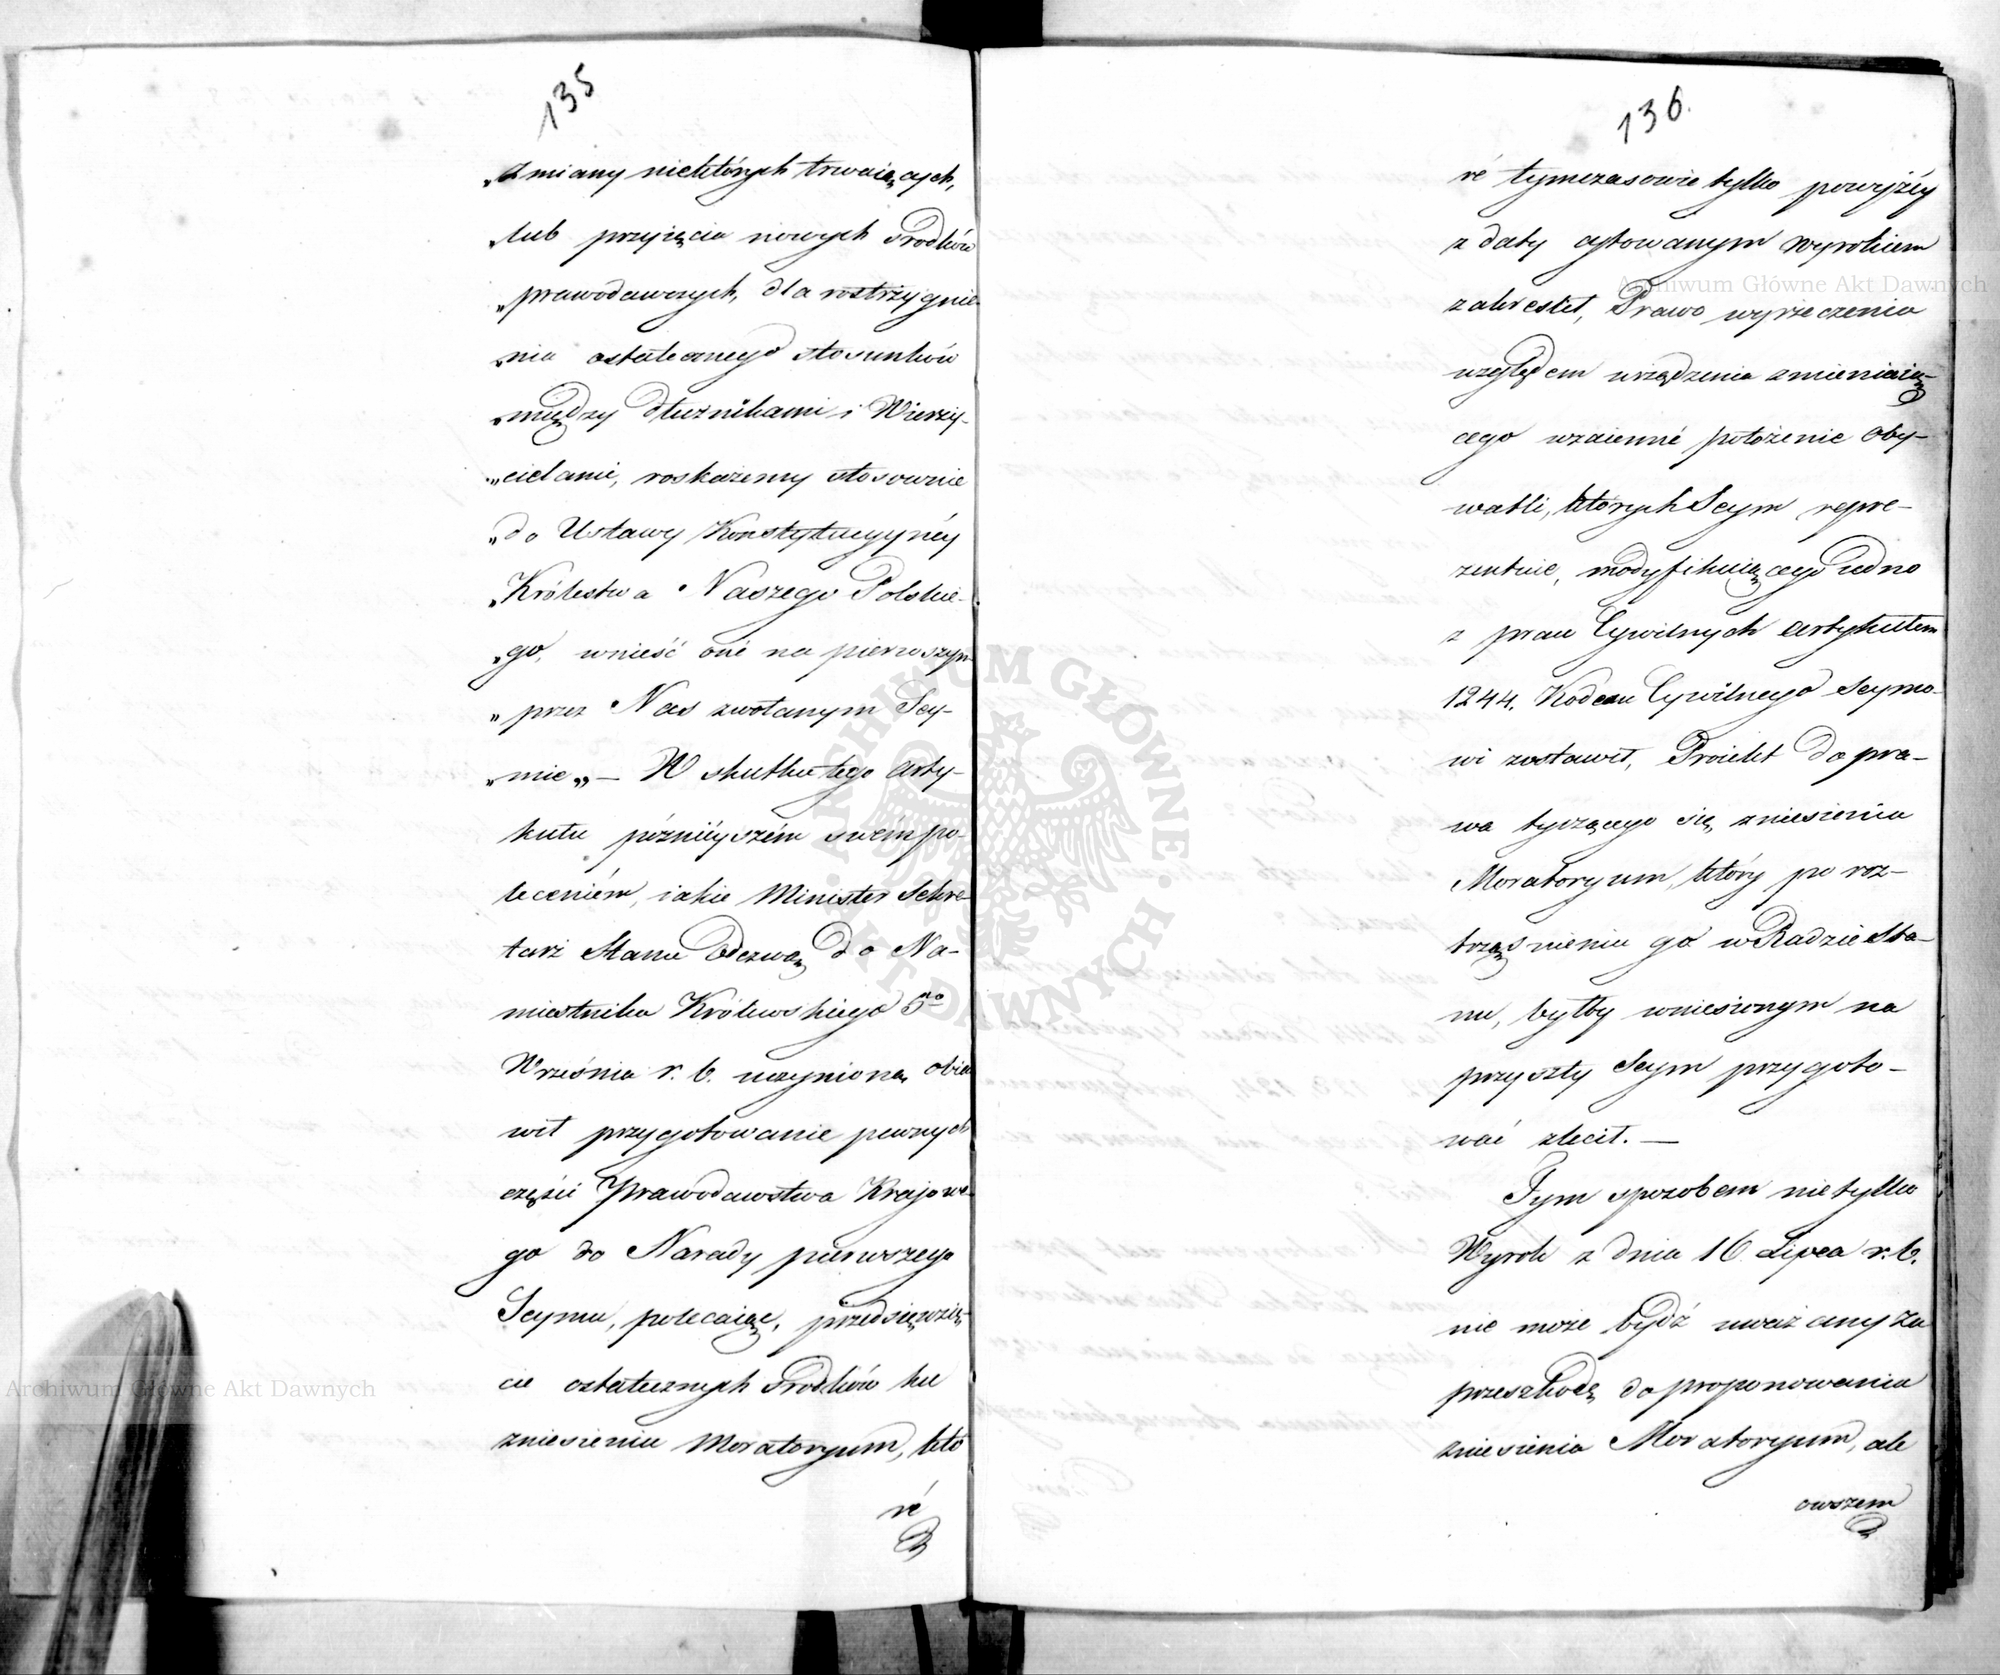 135
„Zmiany niektórych trwaiących,
„lub przyięcia nowych srodków
„prawodawczych, dla rostrzygnie-
„nia ostatecznego stosunków
„między dłużnikami i Wierzy-
„cielami, roskażemy stosownie
„do Ustawy Konstytucyynéy
„Królestwa Naszego Polskie-
„go, wnieść oné na pierwszym
„przez Nas zwołanym Sey-
„mie„ — W skutku tego arty-
kułu późnieyszém swém po-
leceniém, iakie Minister Sekre-
tarz Stanu Odezwą do Na-
miestnika Królewskiego 5go
Września r. b. uczynioną, obia
wił przygotowanie pewnych
części Prawodawstwa Krajowe-
go do Narady pierwszego
Seymu, polecaiąc, przedsięwzię-
cie ostatecznych srodków ku
zniesieniu Moratoryum, któ
ré
136.
ré tymczasowie tylko powyżéy
z daty cytowanym wyrokiem
zakreslił, Prawo wyrzeczenia
względem urządzenia zmieniaią-
cego wzaiemné położenie oby-
watli, których Seym repre-
zentuie, modyfikuiącego iedno
z praw Cywilnych artykułem
1244. Kodexu Cywilnego Seymo-
wi zostawił, Proiekt do pra-
wa tyczącego się zniesienia
Moratoryum, który po roz-
trząśnieniu go w Radzie Sta-
nu, byłby wniesionym na
przyszły Seym przygoto-
wać zlecił. —
Tym sposobem nietylko
Wyrok z dnia 16 Lipca r. b.
nie może bydź uważany za
przeszkodę do proponowania
zniesienia Moratoryum, ale
owszem
ARCHIWUM GŁÓWNE AKT DAWNYCH
Archiwum Główne Akt Dawnych
Archiwum Główne Akt Dawnych